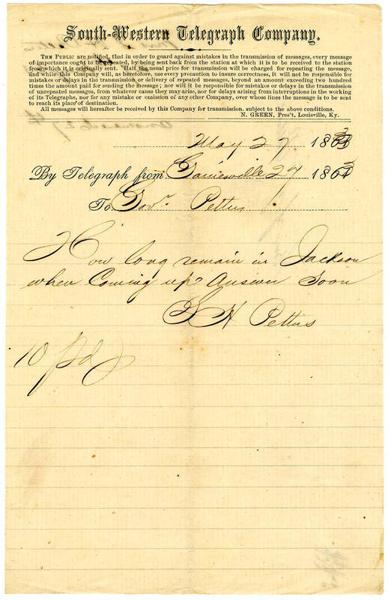 South-Western Telegraph Company.
THE PUBLIC are notified, that in order to guard against mistakes in the transmission of messages, every message
of importance ought to be repeated, by being sent back from the station at which it is to be received to the station
from which it is originally sent. Half the usual price for transmission will be charged for repeating the message,
and while this Company will, as heretofore, use every precaution to insure correctness, it will not be responsible for
mistakes or delays in the transmission or delivery of repeated messages, beyond an amount exceeding two hundred
times the amount paid for sending the message; nor will it be responsible for mistakes or delays in the transmission
of unrepeated messages, from whatever cause they may arise, nor for delays arising from interruptions in the working
of its Telegraphs, nor for any mistake or omission of any other Company, over whose lines the message is to be sent
to reach its place of destination.
All messages will hereafter be received by this Company for transmission, subject to the above conditions.
N. GREEN, Pres't, Louisville, Ky.
May 29 1863
By Telegraph from Gainesville 29 1863
To Gov. Pettus
How long remain in Jackson
when Coming up? Answer Soon
J H Pettus
10 pd